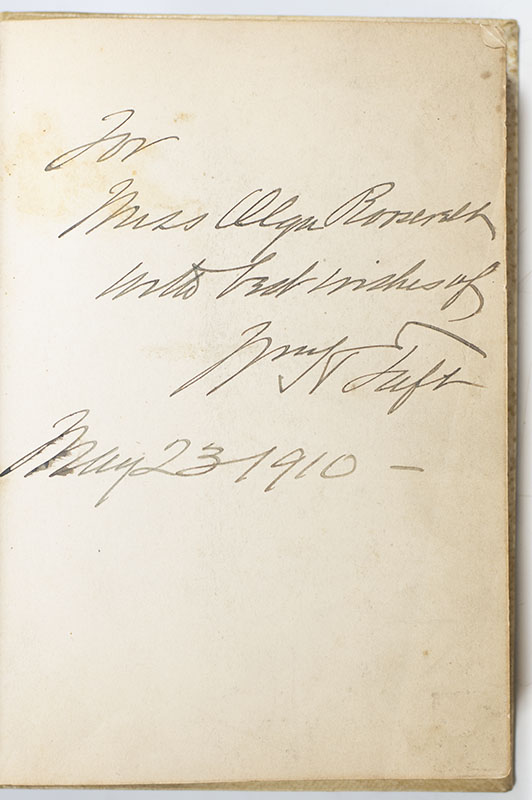 For
Miss Olga Roosevelt
with best wishes of
Wm H Taft
May 23 1910 –